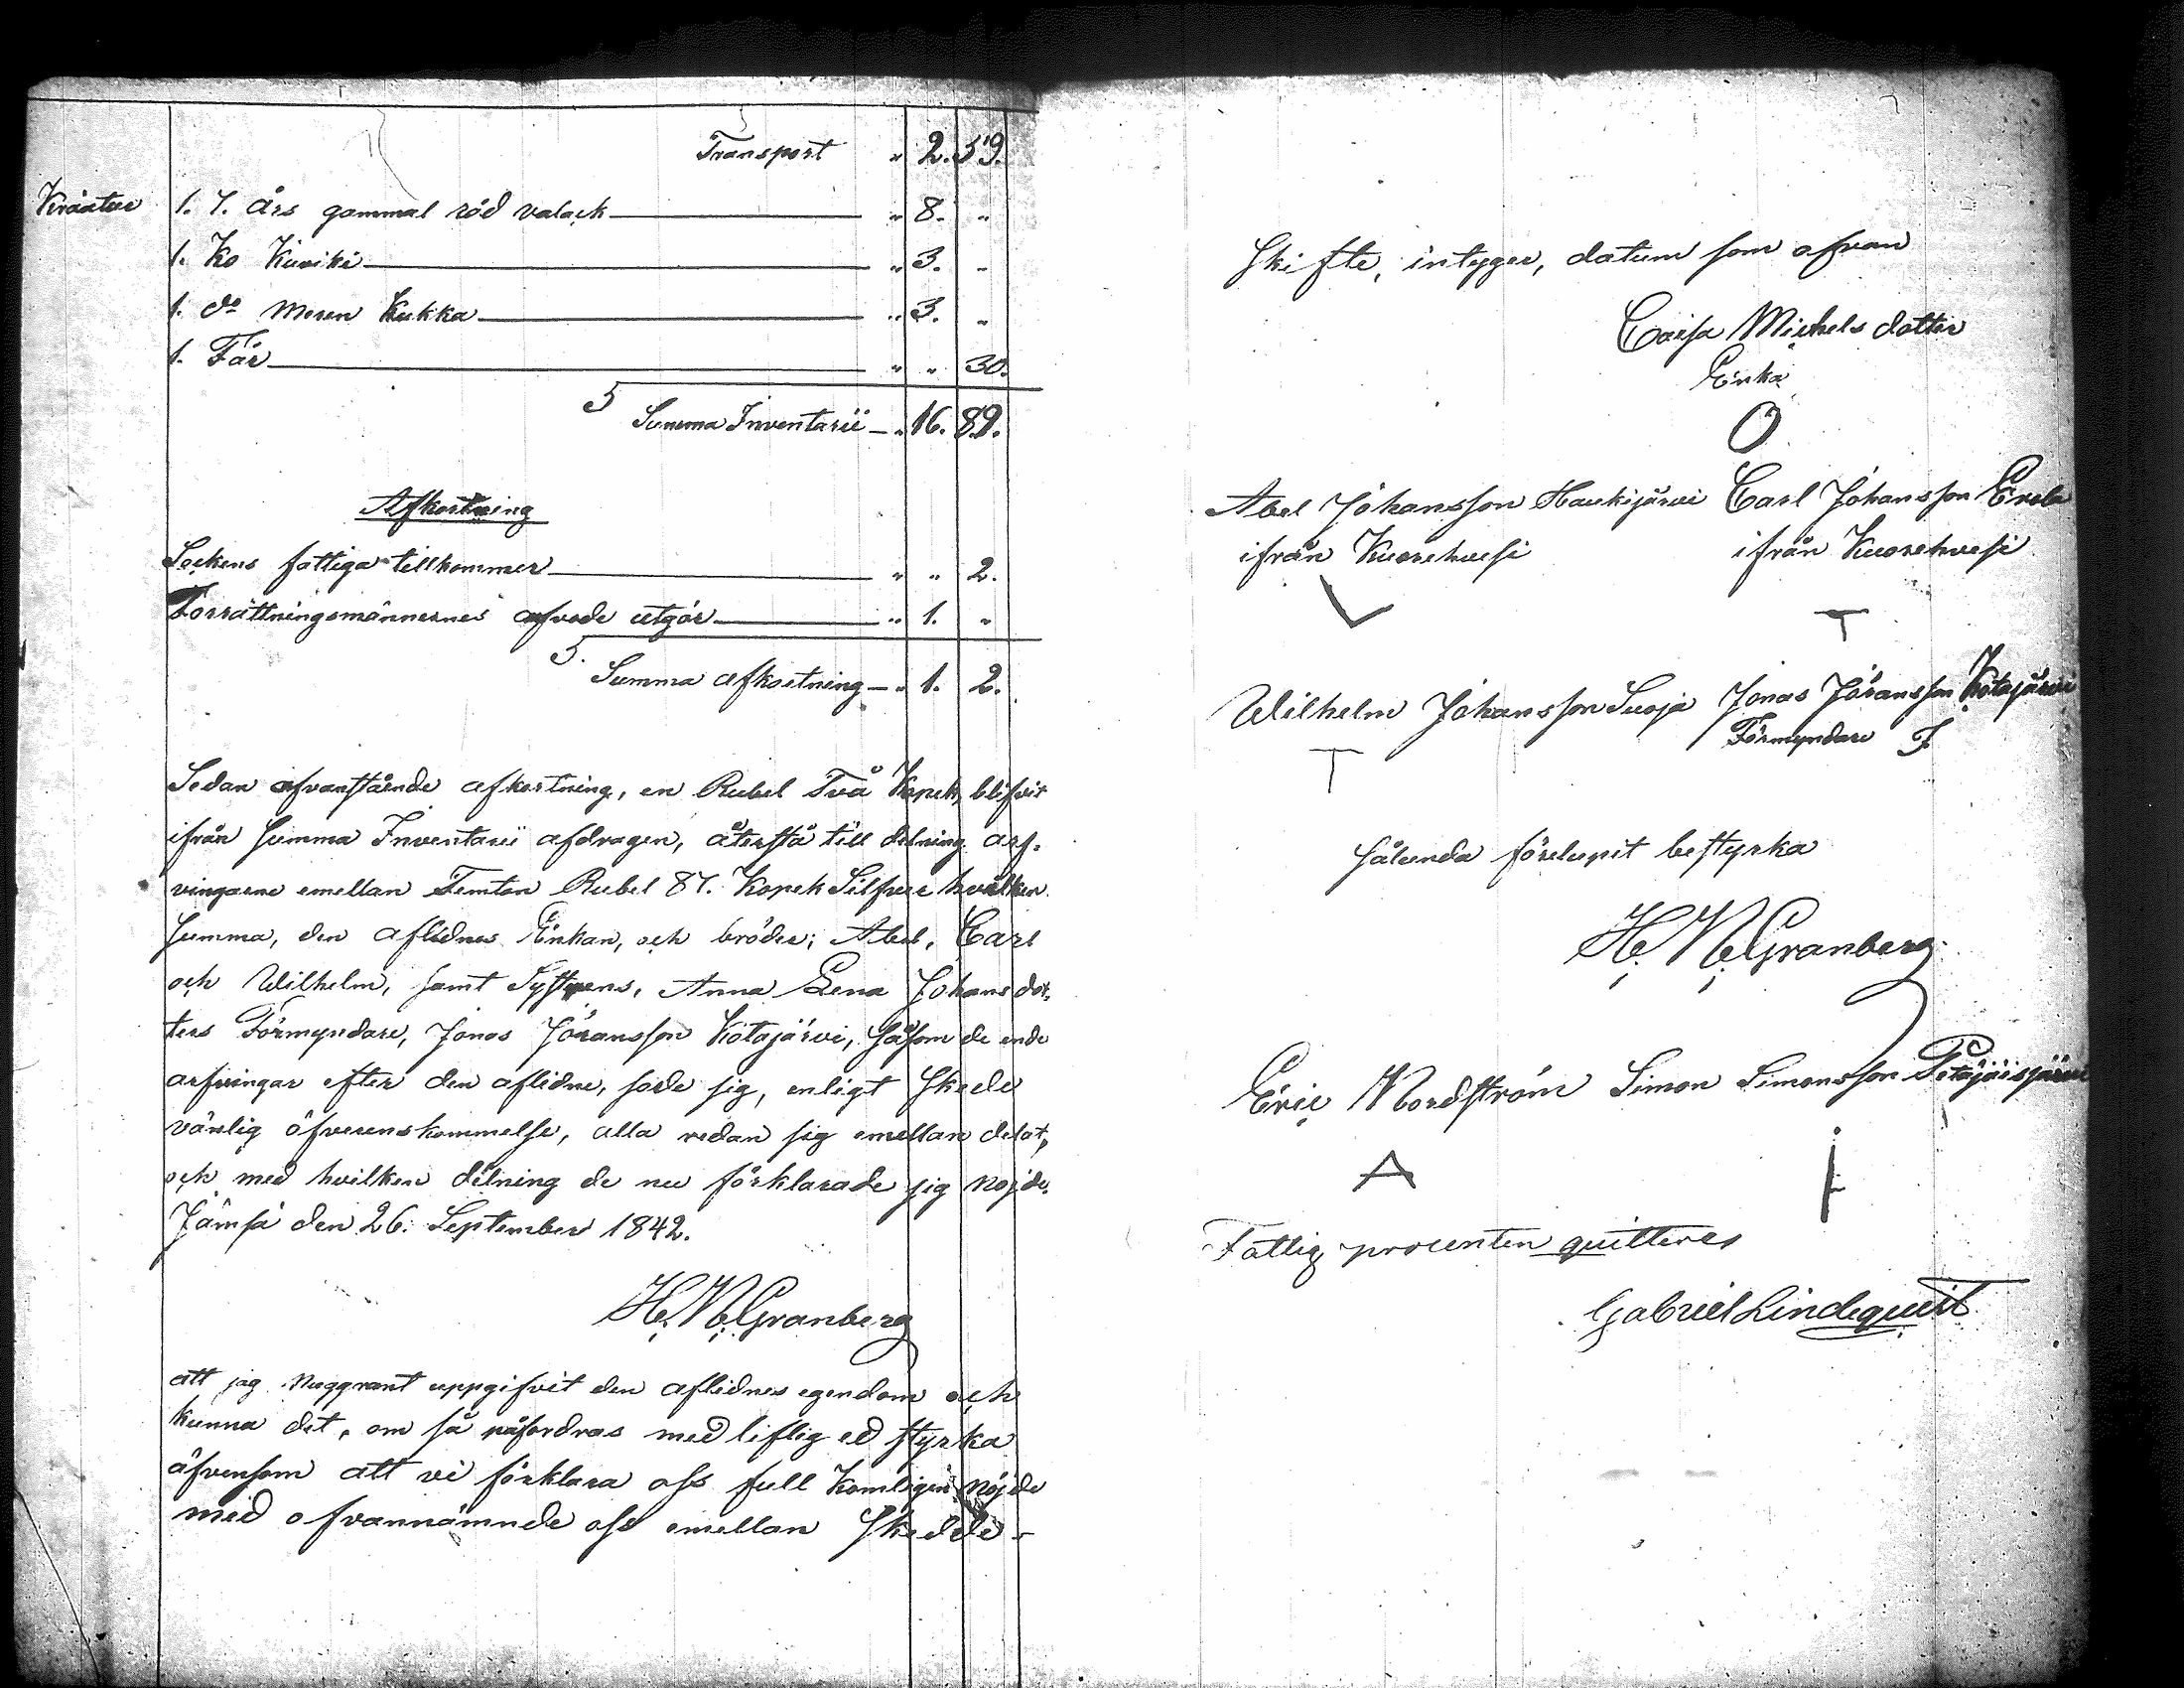 Transport " 2. 59.
Kräatur 1. 7. års gammal röd valack " 8. "
1. Ko Kuviki " 3. "
1. do Meren Kukka " 3. "
1. Får " " 30.
S Summa Inventarii " 16. 89.
Afkortning
Sockens fattiga tillkommer " " 2.
Förrättningsmännernes arfvode utgör " 1. "
S. Summa afkortning " 1. 2.
Sedan ofvanstående afkortning, en Rubel Två Kopek, blifvit
ifrån Summa Inventarii afdragen, återstå till delning arf-
vingarne emellan Femton Rubel 87. Kopek Silfver hvilken
Summa, den aflidnes Enkan, och bröder; Abel, Carl
och Wilhelm, samt Systrens, Anna Lena Johansdot-
ters Förmyndare, Jonas Jöransson Kotajärvi, såsom de ende
arfvingar efter den aflidne, sade sig, enligt skede
vänlig öfverenskommelse, alla redan sig emellan delat,
och med hvilken delning de nu förklarade sig nöjde.
Jämsä den 26. September 1842.
H. N. Granberg
att jag noggrant uppgifvit den aflidnes egendom och
kunna det, om så påfordras med liflig ed styrka
äfvensom att vi förklara oss full komligen nöjde
med ofvannämnde oss emellan skedde
Skifte, intyger, datum som ofvan
Caisa Michels dotter
Enka
O
Abel Johansson Haukijärvi Carl Johansson
ifrån Kuorehvesi ifrån Kuorehvesi
Wilhelm Johansson Suoja Jonas Jöransson Kotajärvi
Förmyndare
sålunda förelupit bestyrka
H. N. Granberg
Eric Nordström Simon Simonsson Petäjäisjärvi
A
Fattig procenten quitteres
Gabriel Lindequist